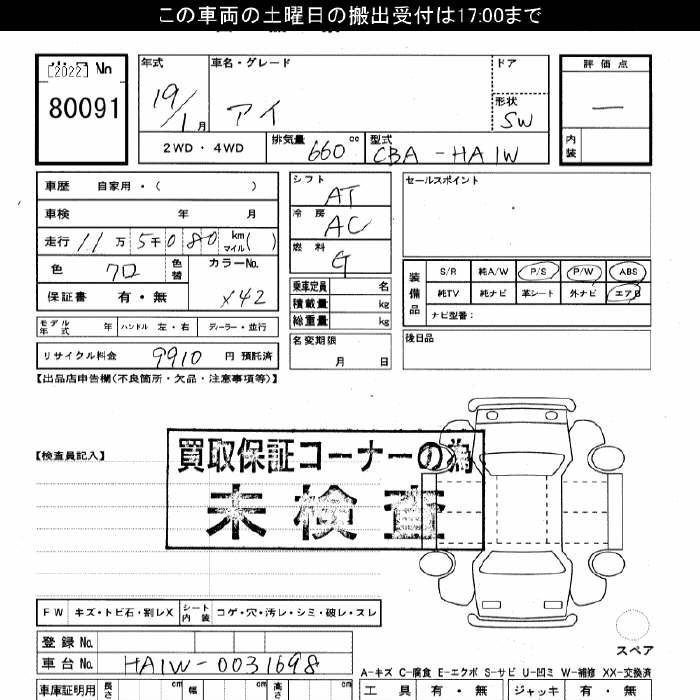 この車両の土曜日の搬出受付は17:00まで
[2022] No
80091
年式 車名・グレード ドア 評価点
19/1月 アイ 形状 SW —
2WD・4WD 排気量 660 cc 型式 CBA-HA1W 内装
車歴 自家用・( )
車検 年 月
走行 11万5千080 km マイル( )
色 クロ 色替 カラーNo. X42
保証書 有・無
モデル年式 年 ハンドル 左・右 ディーラー・並行
リサイクル料金 9910 円 預託済
シフト AT
冷房 AC
燃料 G
乗車定員 名
積載量 kg
総重量 kg
名変期限
月 日
セールスポイント
装備品 S/R 純A/W P/S P/W ABS
純TV 純ナビ 革シート 外ナビ エアB
ナビ型番:
後日品
【出品店申告欄(不良箇所・欠品・注意事項等)】
【検査員記入】
買取保証コーナーの為
未検査
FW キズ・トビ石・割レX シート内装 コゲ・穴・汚レ・シミ・破レ・スレ
登録No.
車台No. HA1W-0031698
車庫証明用 長さ cm 幅 cm 高さ cm
スペア
A-キズ C-腐食 E-エクボ S-サビ U-凹ミ W-補修 XX-交換済
工具 有・無 ジャッキ 有・無